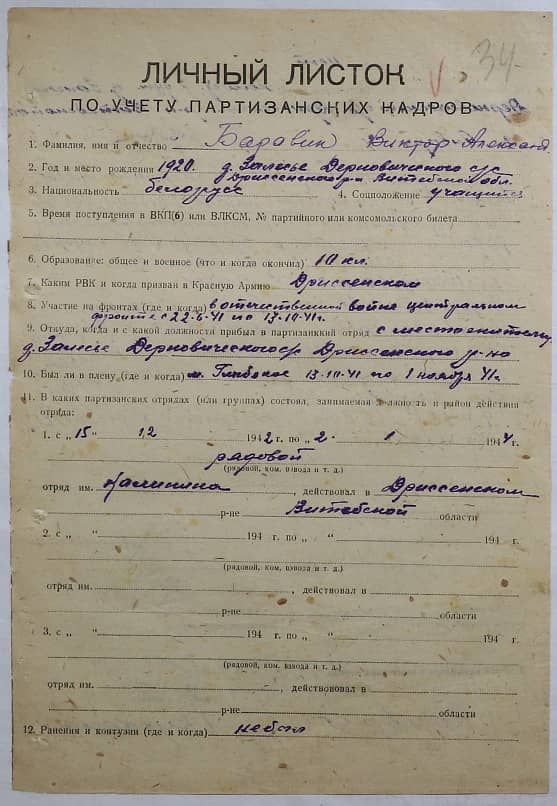 34
ЛИЧНЫЙ ЛИСТОК
ПО УЧЕТУ ПАРТИЗАНСКИХ КАДРОВ
1. Фамилия, имя и отчество Баравик Виктор Александ
2. Год и место рождения 1920. д. Залесье Дерновичского с/с
Дриссенского р-н Витебской обл.
3. Национальность белорусс 4. Соцположение учащийся
5. Время поступления в ВКП(б) или ВЛКСМ, № партийного или комсомольского билета
6. Образование: общее и военное (что и когда окончил) 10 кл.
7. Каким РВК и когда призван в Красную Армию Дриссенском
8. Участие на фронтах (где и когда) в отечественной войне центральном
фронте с 22-6-41 по 13-10-41 г.
9. Откуда, когда и с какой должности прибыл в партизанкий отряд с места
д. Залесье Дерновического с/с Дриссенского р-на
10. Был ли в плену (где и когда) м. Глубокое 13-10-41 по 1 ноября 41 г.
11. В каких партизанских отрядах (или группах) состоял, занимаемая должность и район действия
отряда:
1. с „ 15 " 12 1942 г. по „ 2 " 1 1944 г.
рядовой
(рядовой, ком. взвода и т. д.)
отряд им. Калинина, действовал в Дриссенском
р-не Витебской области
2. с „ " 194 г. по „ " 194 г.
(рядовой, ком. взвода и т. д.)
отряд им. , действовал в
р-не области
3. с „ " 194 г. по „ " 194 г.
(рядовой, ком. взвода и т. д.)
отряд им. , действововал в
р-не области
12. Ранения и контузии (где и когда) не был